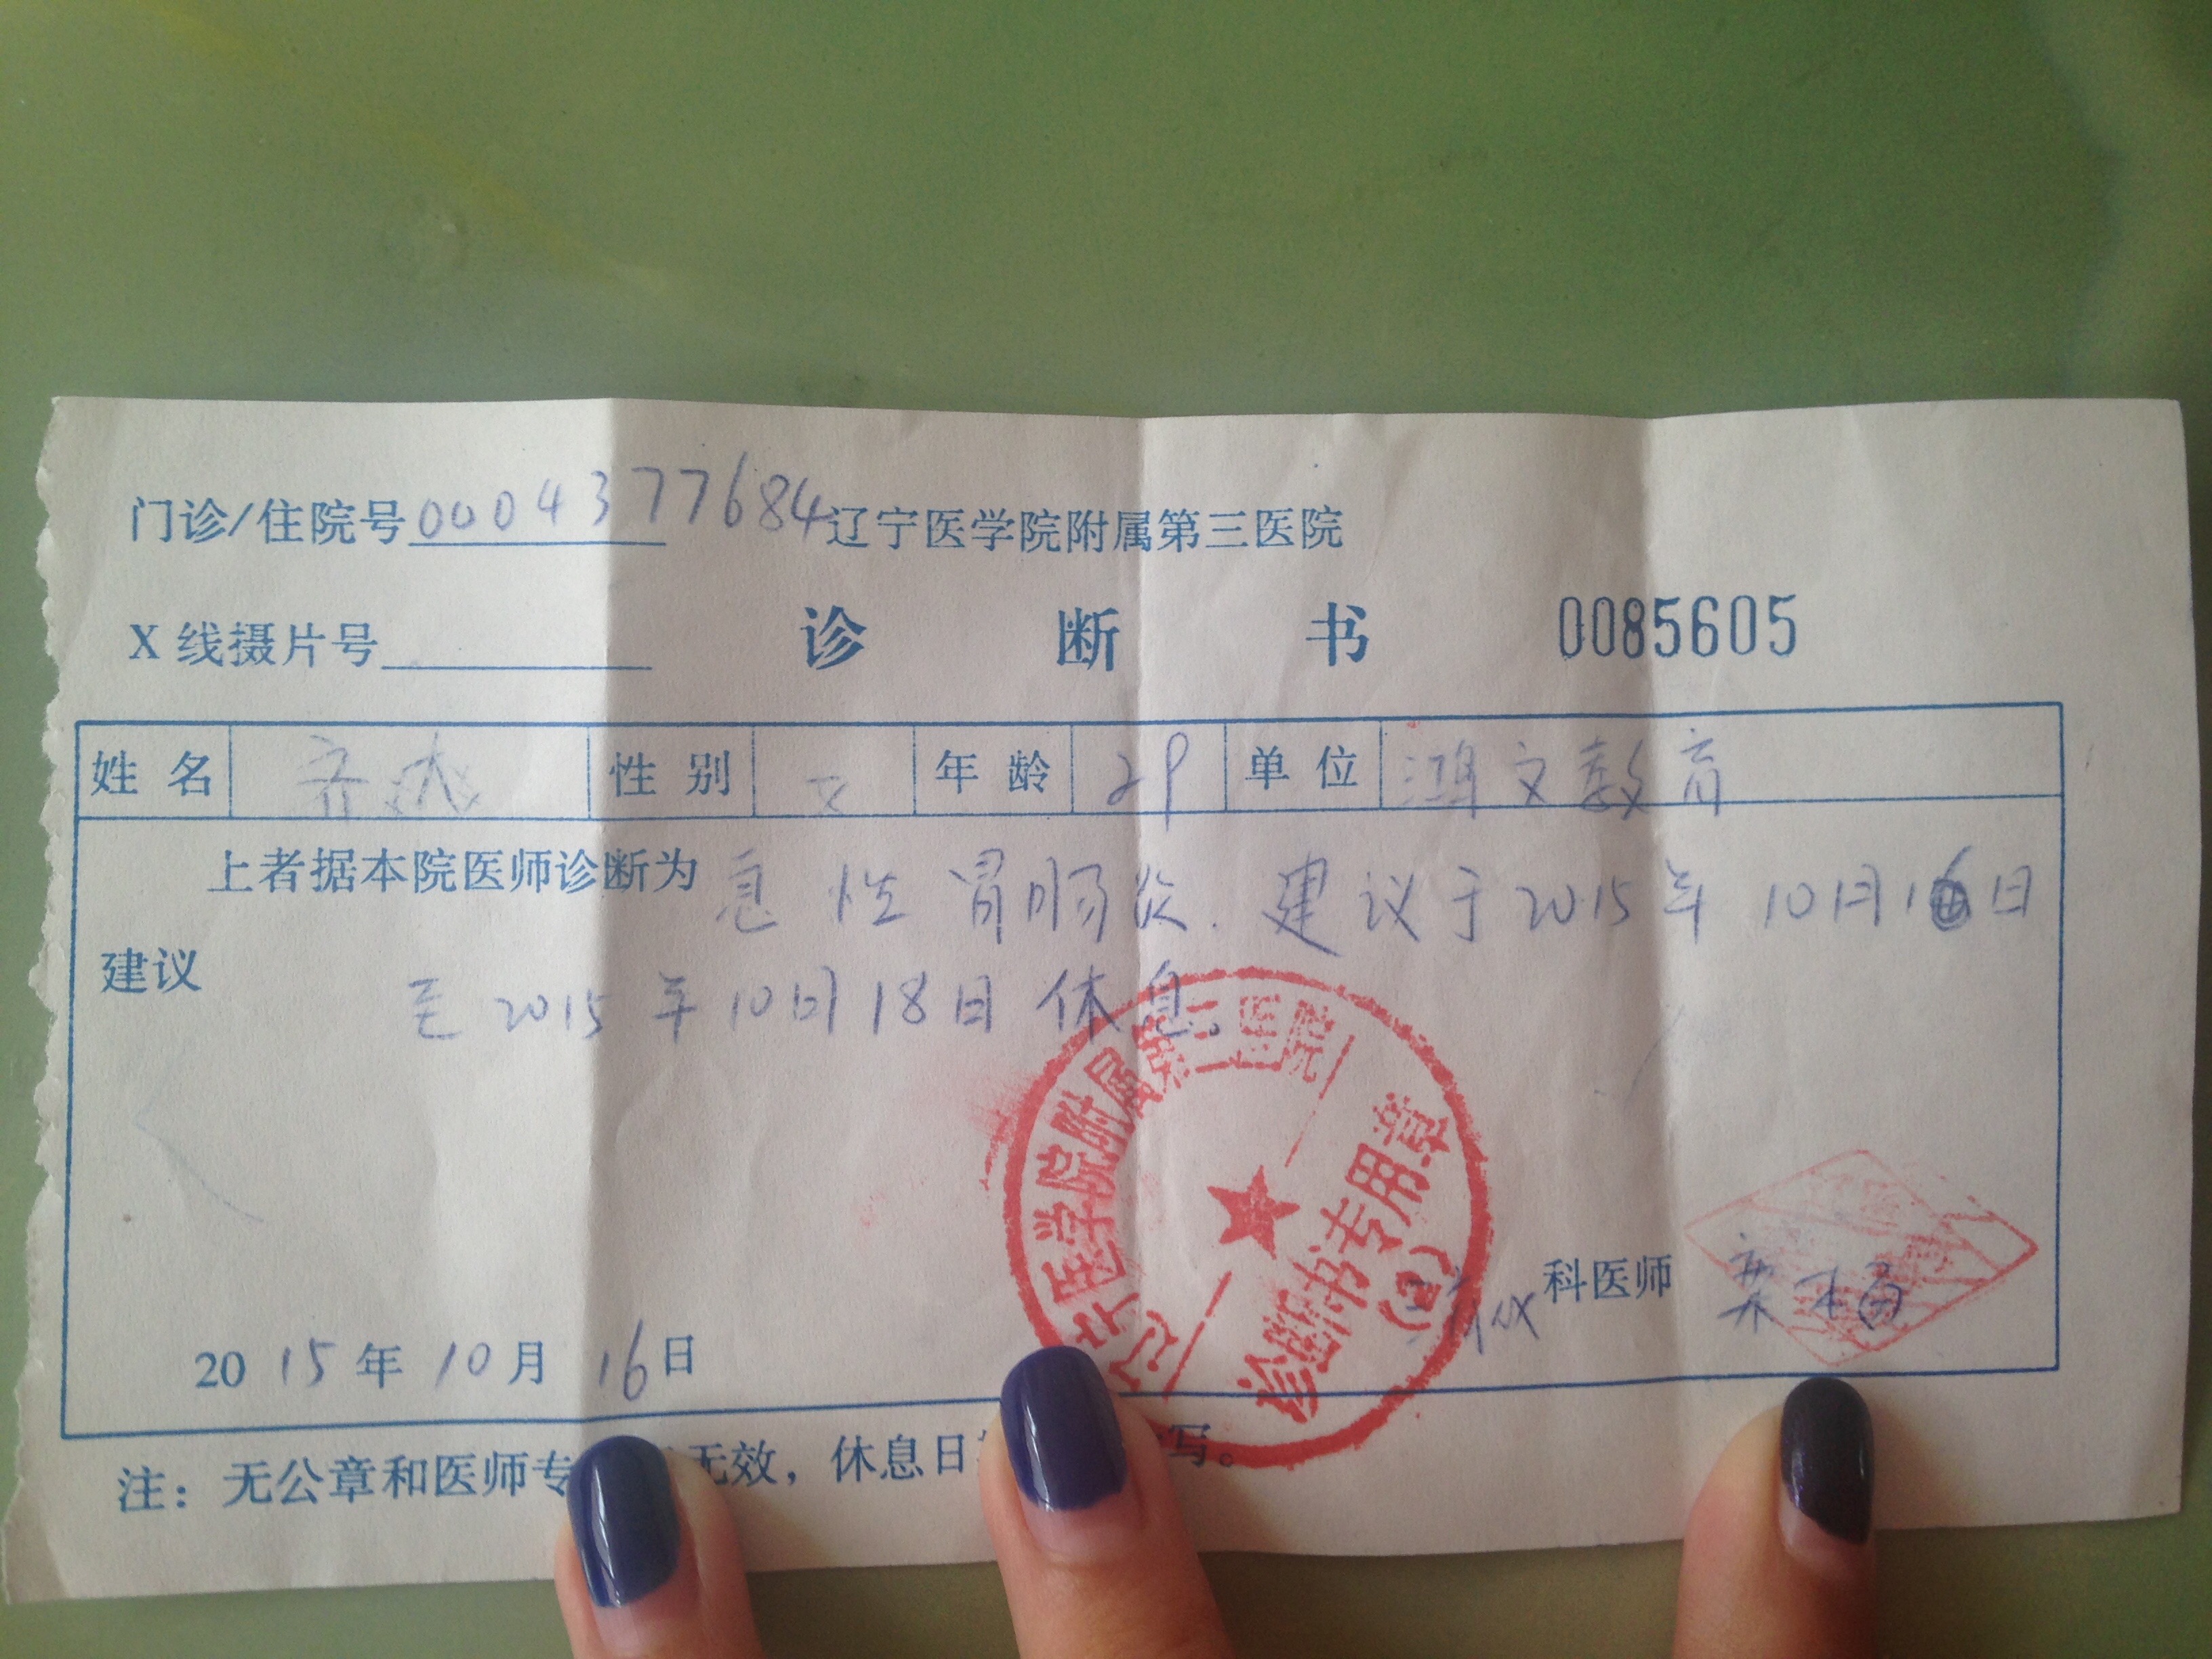 门诊/住院号 0004377684 辽宁医学院附属第三医院
X 线摄片号 诊断书 0085605
姓名 齐 性别 女 年龄 29 单位 鸿文教育
上者据本院医师诊断为 急性胃肠炎. 建议于2015年10月16日
建议 至2015年10月18日休息。
辽宁医学院附属第三医院
诊断书专用章
科医师
2015年10月16日
注：无公章和医师专 无效，休息日 写。